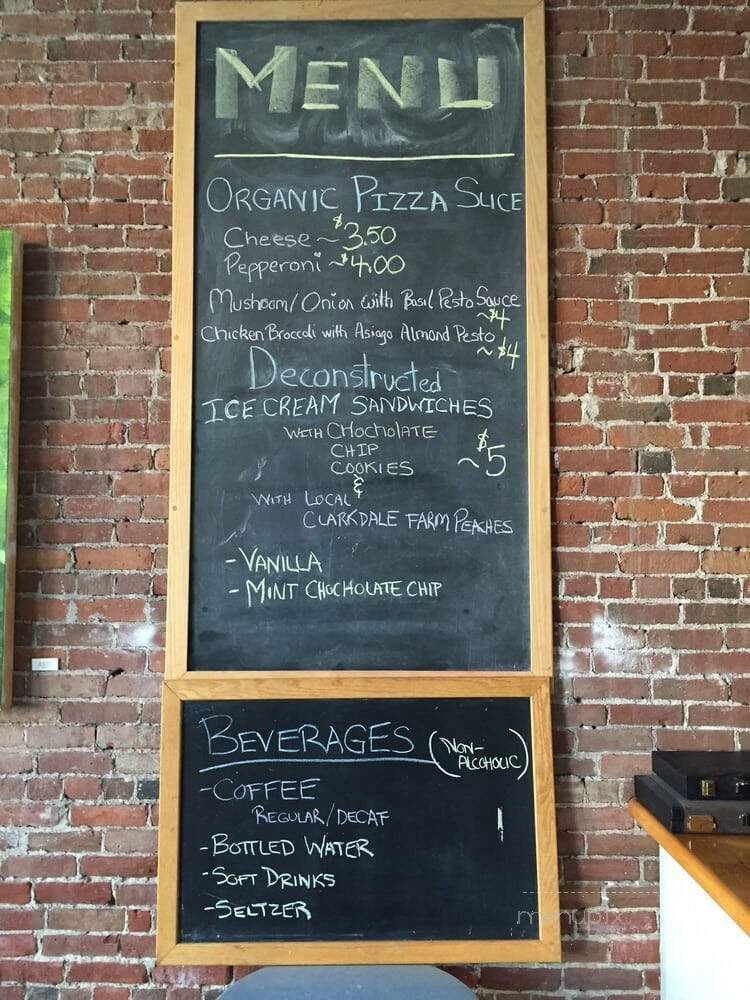 MENU
ORGANIC PIZZA SLICE
Cheese ~ $3.50
Pepperoni ~ $4.00
Mushoom/Onion with Basil Pesto Sauce
~$4
Chicken Broccoli with Asiago Almond Pesto
~ $4
Deconstructed
ICE CREAM SANDWICHES
WITH CHOCHOLATE
CHIP
COOKIES ~ $5
&
WITH LOCAL
CLARKDALE FARM PEACHES
- VANILLA
- MINT CHOCHOLATE CHIP
BEVERAGES (NON-ALCOHOLIC)
- COFFEE
REGULAR/DECAF
- BOTTLED WATER
- SOFT DRINKS
- SELTZER
menupix